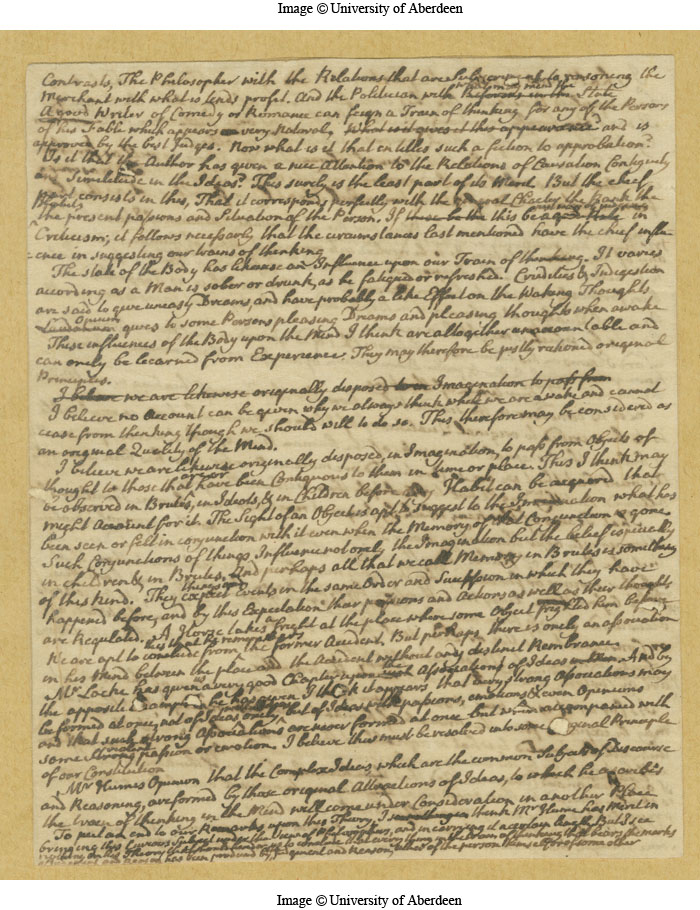 Image © University of Aberdeen
Contrasts, The Philosopher with the Relations that are Subservient to reasoning the
Merchant with what is tends profet. And the Politician with State
A good Writer of Comedy or Romance can feign a Train of thinking for any of the Persons
of his Fable which appears very Natural, and is
approved by the best Judges. Now what is it that entitles such a fiction to approbation?
Is it that the Author has given a nice Attention to the Relations of Causation Contiguity
and Similitude in the Ideas? This surely is the least part of its Merit. But the chief
part consists in this, That it corresponds perfectly with the general the
the present passions and Situation of the Person. If this be a in
Criticism; it follows necessarly that the circumstances last mentioned have the chief influ-
ence in suggesting our trains of thinking
The State of the Body has likewise an Influence upon our Train of thinking. It varies
according as a Man is sober or drunk, as he fatigued or refreshed. Crudities & Indigestion
are said to give uneasy Dreams, and have probably a like Effect on the Waking Thoughts
Opium gives to some Persons pleasing Dreams and pleasing thoughts when awake
These influences of the Body upon the Mind I think are altogither unaccountable and
can onely be learned from Experience. They may therefore be justly original
Principles.
I believe we are likewise originally disposed in Imagination to pass from
I believe no Account can be given why we always think while we are awake and cannot
cease from thinking though we should will to do so. This therefore may be considered as
an original Quality of the Mind.
I believe we are likewise originally disposed, in Imagination, to pass from Objects of
thought to those that have been Contiguous to them in time or place. This I think may
be observed in Brutes, in Ideots, & in Children before any Habit can be acquired that
might Account for it. The Sight of an Object is apt to suggest to the Imagination what has
been seen or felt in conjunction with it even when the Memory of that Conjunction is gone
Such Conjunctions of things Influence not onely the Imagination but the belief especially
in children & in Brutes. And perhaps all that we call Memory in Brutes is something
of this Kind. They expect events in the same Order and Succession in which they have
happened before, and by this Expectation their passions and Actions as well as their thoughts
are Regulated. A Horse takes fright at the place where some Object frighted him before
We are apt to conclude from this that he remembers the former Accident. But perhaps there is onely an association
in his Mind between the place and the Accident without any distinct Remembrance
Mr Locke has given us a very good Chapter upon the Associations of Ideas. And by
the he has given I think it appears that very strong Associations may
be formed at once, not of Ideas onely but of Ideas with passions, emotions & even Opinions
and that such strong Associations are never formed at once but when accompanied with
some Strong passion or emotion. I believe this must be resolved into some original Principle
of our Constitution
Mr Humes Opinion that the Complex Ideas, which are the common Subjects of Discourse
and Reasoning, are formed by those original Attractions of Ideas, to which he ascribes
the train of thinking in the Mind will come under Consideration in another Place
To put an end to our Remarks upon this Theory, I think Mr Hume has Merit in
bringing this Curious Subject under the View of Philosophers, and in carrying it a certain length. But I see
nothing in this Theory that should hinder us to conclude that every thing in the train of thinking that bears the marks
has been produced by Judgment and Reason, either of the person himself or of some other
Image © University of Aberdeen